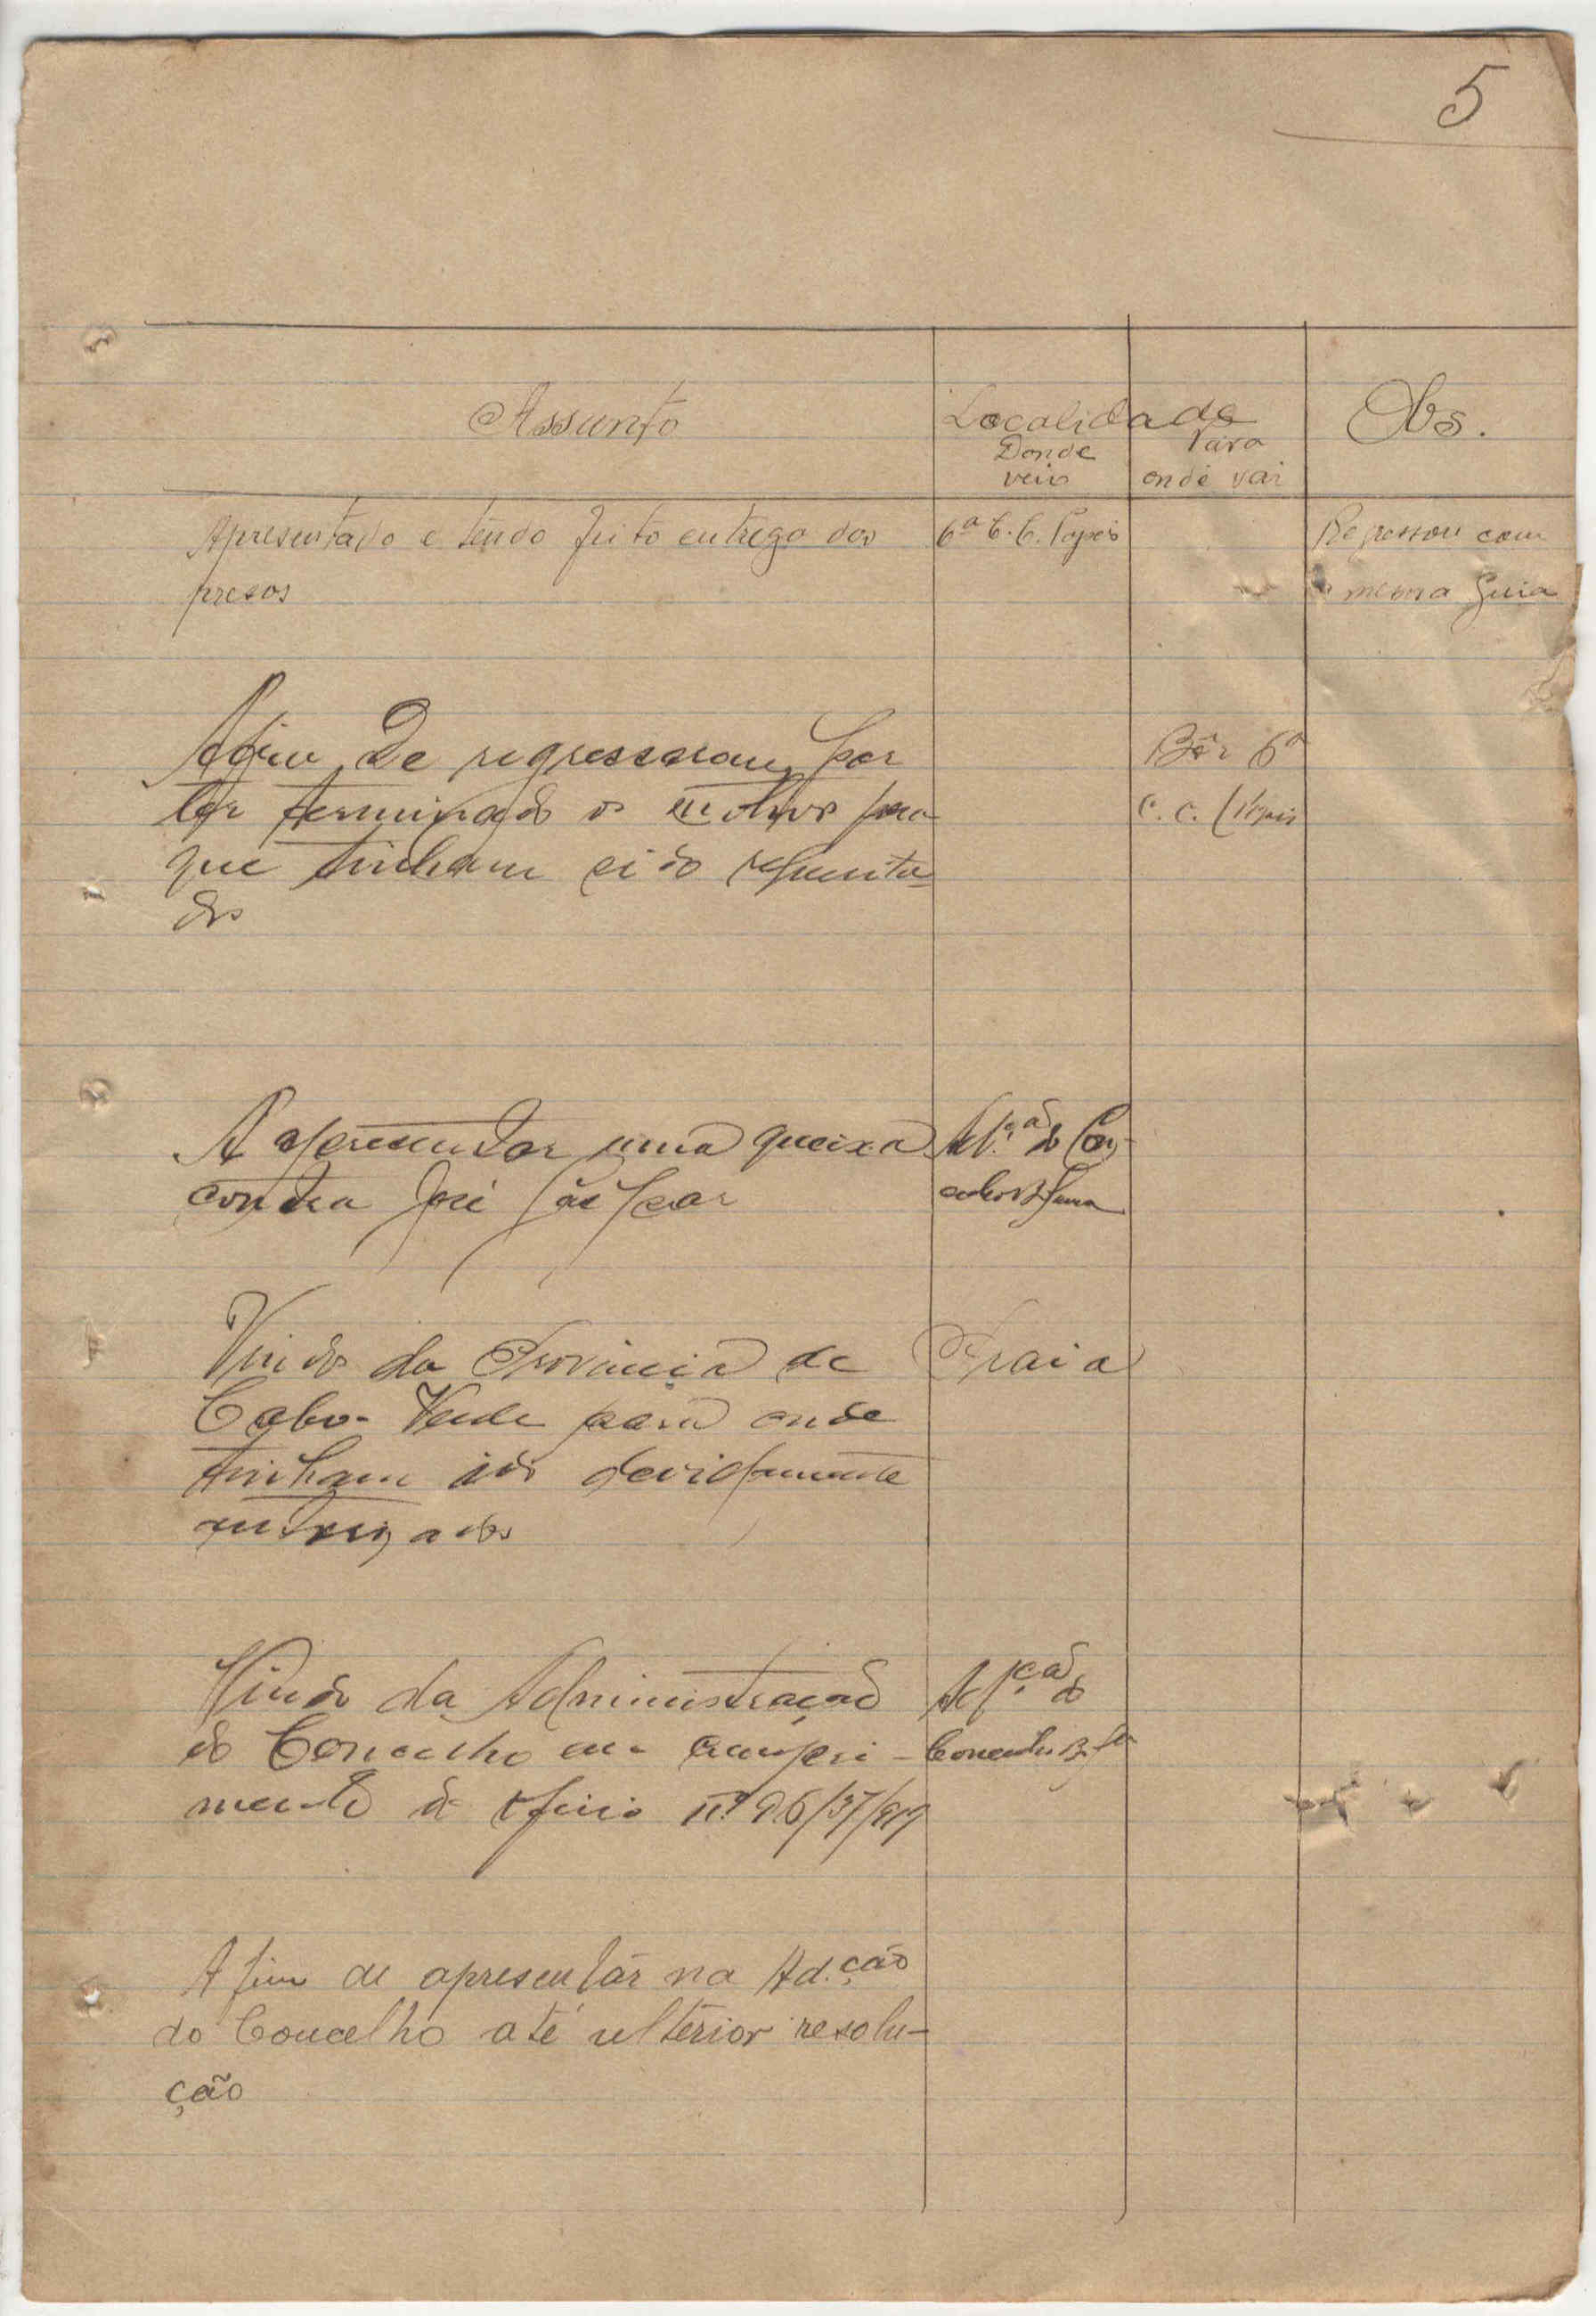 5
Assunto
Localidade
Obs.
Donde
veio
Para
onde vai
Apresentado e tendo feito entrega dos
presos
6ª C. C. Papeis
Regressou com
a mesma Guia
Afim de regressarem por
ter terminado o motivo para
que tinham sido requisita-
dos
Bôr 6ª
C. C. (Papeis
A apresentar uma queixa
contra José
Ad.ção do Con-
celho
Vindos da Provincia de
Cabo-Verde para onde
tinham ido devidamente
autorizados
Praia
Vindo da Administração
do Concelho em cumpri-
mento do oficio nº 96/37/917
Ad.ção do
Concelho B.
Afim de apresentár na Ad.ção
do Concelho até ulterior resolu-
ção